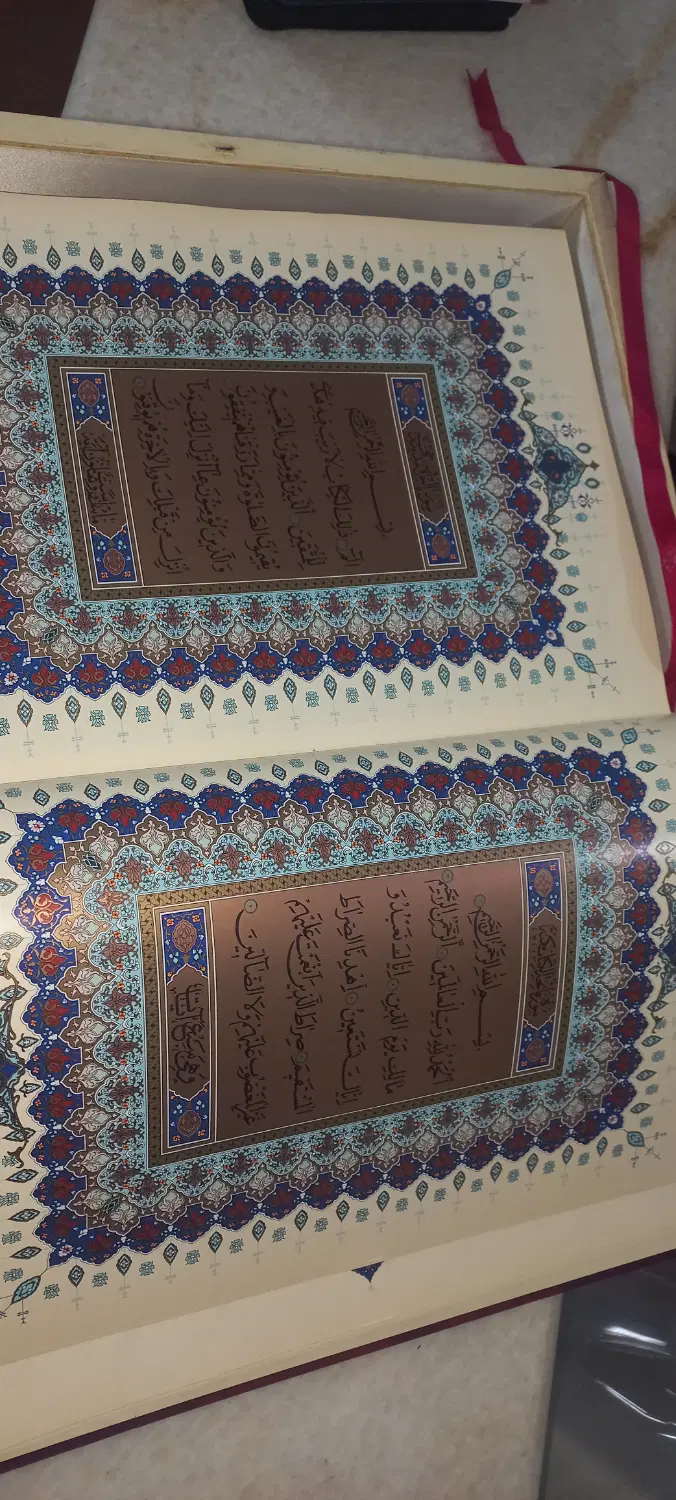 وَهِيَ سَبْعُ آيَاتٍ
بِسْمِ اللهِ الرَّحْمٰنِ الرَّحِيمِ
اَلْحَمْدُ لِلّٰهِ رَبِّ الْعَالَمِينَ اَلرَّحْمٰنِ الرَّحِيمِ
مَالِكِ يَوْمِ الدِّينِ اِيَّاكَ نَعْبُدُ وَ
اِيَّاكَ نَسْتَعِينُ اِهْدِنَا الصِّرَاطَ
الْمُسْتَقِيمَ صِرَاطَ الَّذِينَ اَنْعَمْتَ عَلَيْهِمْ
غَيْرِ الْمَغْضُوبِ عَلَيْهِمْ وَلَا الضَّالِّينَ
بِسْمِ اللهِ الرَّحْمٰنِ الرَّحِيمِ
الٓمٓ ذٰلِكَ الْكِتَابُ لَا رَيْبَ فِيهِ هُدًى
لِلْمُتَّقِينَ اَلَّذِينَ يُؤْمِنُونَ بِالْغَيْبِ وَ
يُقِيمُونَ الصَّلٰوةَ وَمِمَّا رَزَقْنَاهُمْ يُنْفِقُونَ
وَالَّذِينَ يُؤْمِنُونَ بِمَا اُنْزِلَ اِلَيْكَ وَمَا
اُنْزِلَ مِنْ قَبْلِكَ وَبِالْاٰخِرَةِ هُمْ يُوقِنُونَ